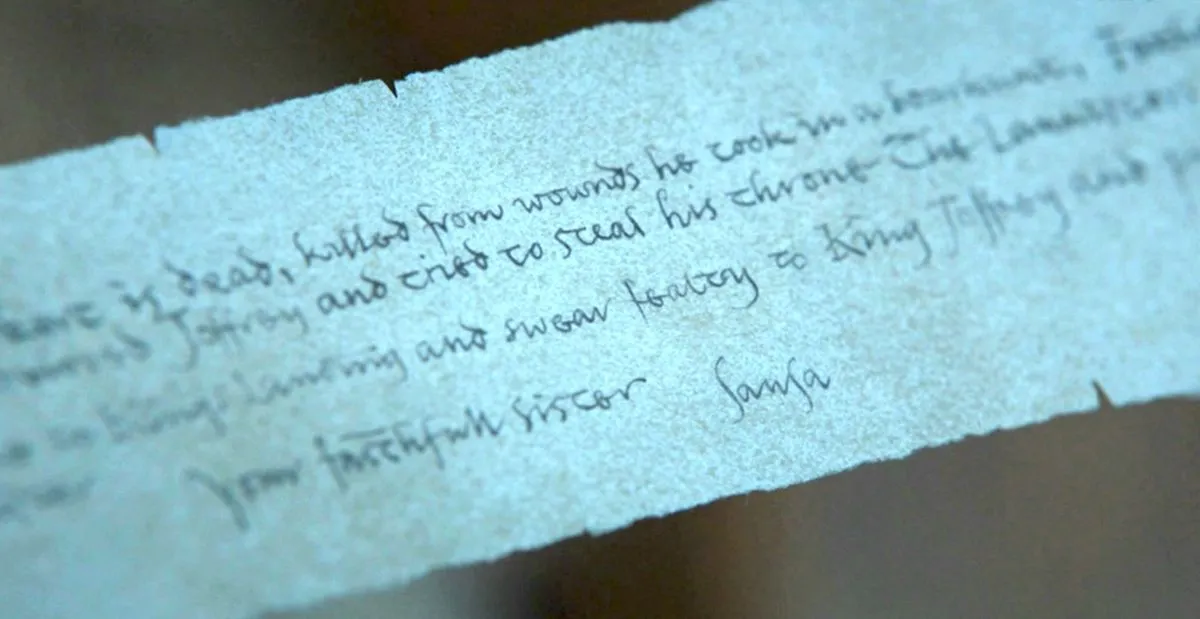 is dead, killed from wounds he took in a boar hunt,
Joffrey and tried to steal his throne The Lannisters
Kings Landing and swear fealty to King Joffrey and
your faithfull sister Sansa